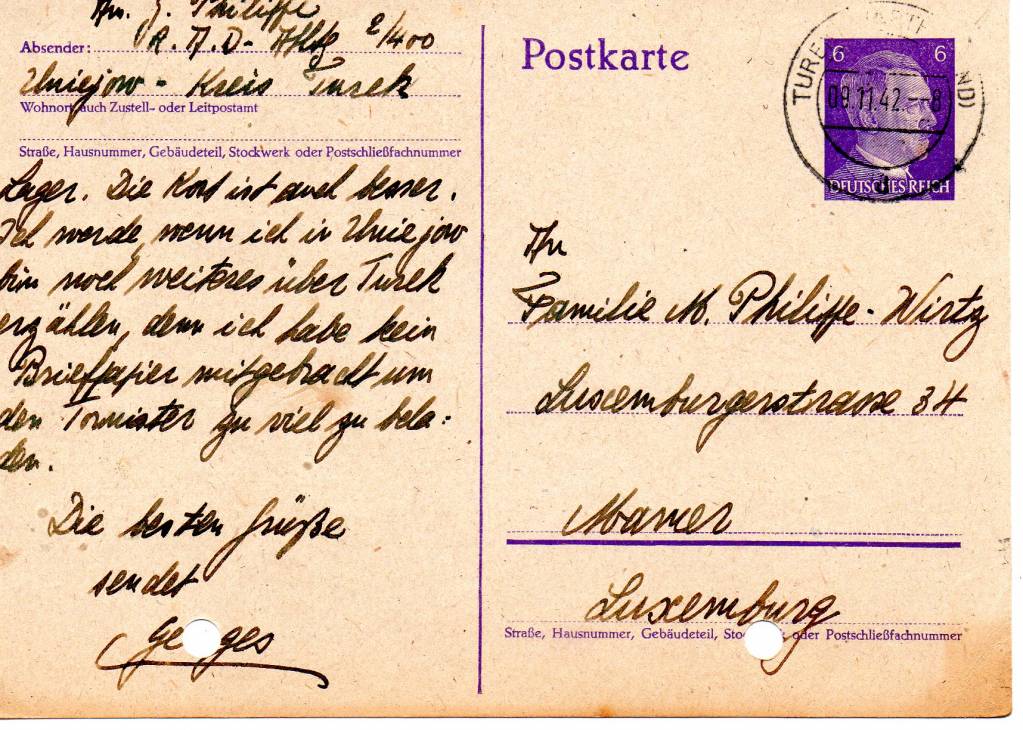 Am. G. Philippe
Absender: R.A.D- Abtg 2/400
Uniejow - Kreis Turek
Wohnort, auch Zustell- oder Leitpostamt
Straße, Hausnummer, Gebäudeteil, Stockwerk oder Postschließfachnummer
Lager. Die Kost ist auch besser.
Ich werde, wenn ich in Uniejow
bin noch weiteres über Turek
erzählen, denn ich habe kein
Briefpapier mitgebracht um
den Tornister zu viel zu bela-
den.
Die besten Grüße
sendet
Georges
Postkarte
6 6
TUREK (WARTHELAND)
09.11.42. - 8
DEUTSCHES REICH
An
Familie M. Philippe - Wirtz
Luxemburgerstrasse 34
Mamer
Luxemburg
Straße, Hausnummer, Gebäudeteil, Stockwerk oder Postschließfachnummer